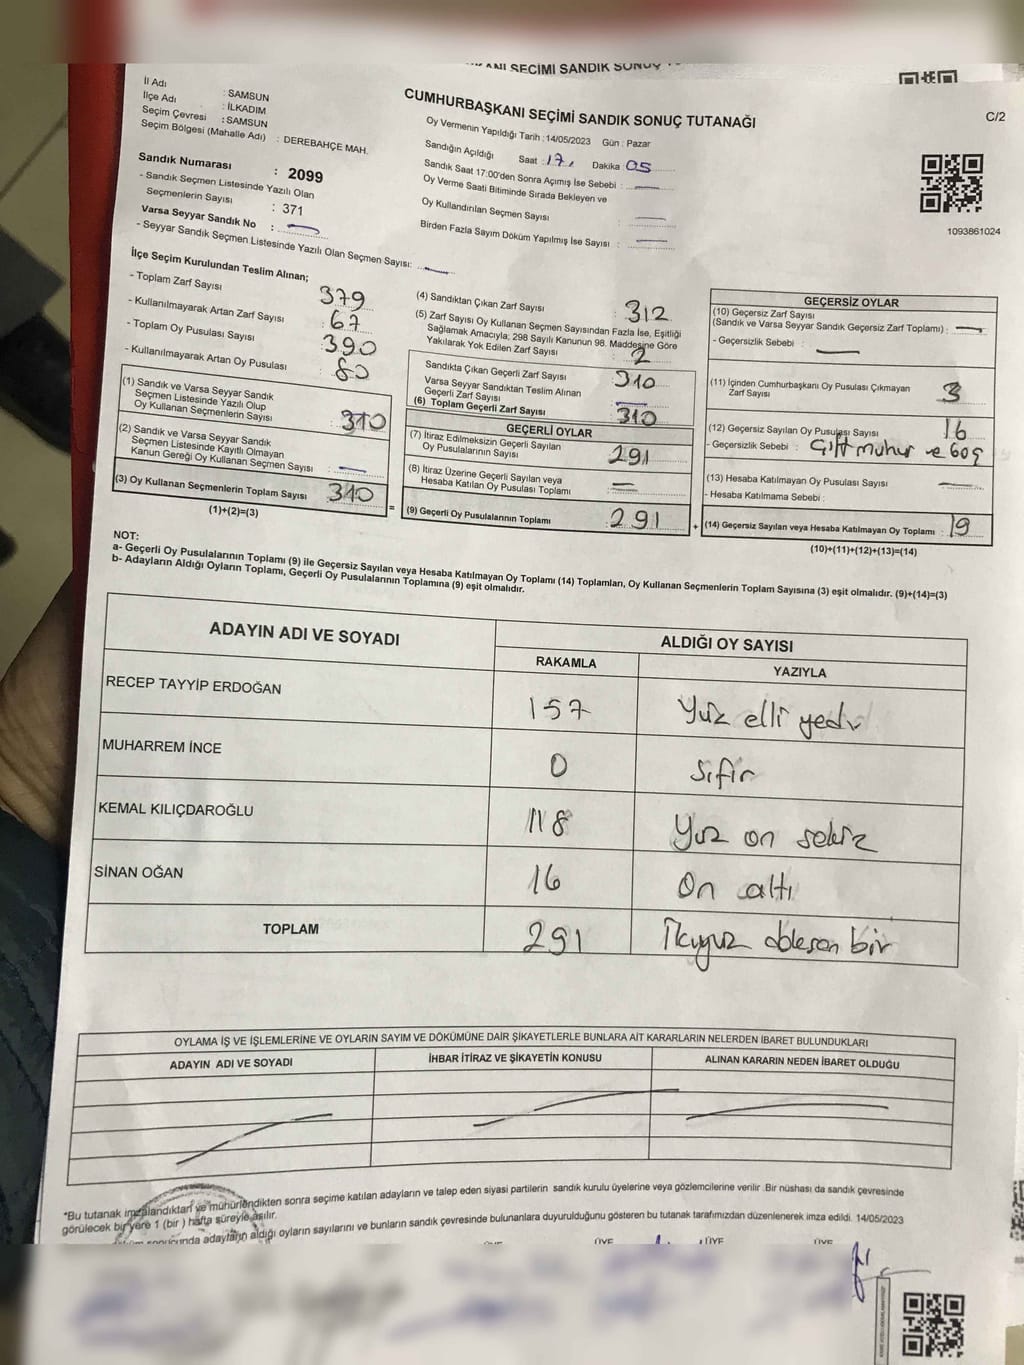 CUMHURBAŞKANI SEÇİMİ SANDIK SONUÇ TUTANAĞI
C/2
İl Adı : SAMSUN
İlçe Adı : İLKADIM
Seçim Çevresi : SAMSUN
Seçim Bölgesi (Mahalle Adı) : DEREBAHÇE MAH.
Sandık Numarası : 2099
- Sandık Seçmen Listesinde Yazılı Olan
Seçmenlerin Sayısı : 371
Varsa Seyyar Sandık No :
- Seyyar Sandık Seçmen Listesinde Yazılı Olan Seçmen Sayısı:
Oy Vermenin Yapıldığı Tarih : 14/05/2023 Gün : Pazar
Sandığın Açıldığı Saat : 17 Dakika 05
Sandık Saat 17:00'den Sonra Açımış İse Sebebi :
Oy Verme Saati Bitiminde Sırada Bekleyen ve
Oy Kullandırılan Seçmen Sayısı :
Birden Fazla Sayım Döküm Yapılmış İse Sayısı :
1093861024
İlçe Seçim Kurulundan Teslim Alınan;
- Toplam Zarf Sayısı : 379
- Kullanılmayarak Artan Zarf Sayısı : 67
- Toplam Oy Pusulası Sayısı : 390
- Kullanılmayarak Artan Oy Pusulası : 80
(1) Sandık ve Varsa Seyyar Sandık
Seçmen Listesinde Yazılı Olup
Oy Kullanan Seçmenlerin Sayısı : 310
(2) Sandık ve Varsa Seyyar Sandık
Seçmen Listesinde Kayıtlı Olmayan
Kanun Gereği Oy Kullanan Seçmen Sayısı :
(3) Oy Kullanan Seçmenlerin Toplam Sayısı : 310
(1)+(2)=(3)
(4) Sandıktan Çıkan Zarf Sayısı : 312
(5) Zarf Sayısı Oy Kullanan Seçmen Sayısından Fazla İse, Eşitliği
Sağlamak Amacıyla; 298 Sayılı Kanunun 98. Maddesine Göre
Yakılarak Yok Edilen Zarf Sayısı : 2
Sandıkta Çıkan Geçerli Zarf Sayısı : 310
Varsa Seyyar Sandıktan Teslim Alınan
Geçerli Zarf Sayısı
(6) Toplam Geçerli Zarf Sayısı : 310
GEÇERLİ OYLAR
(7) İtiraz Edilmeksizin Geçerli Sayılan
Oy Pusulalarının Sayısı : 291
(8) İtiraz Üzerine Geçerli Sayılan veya
Hesaba Katılan Oy Pusulası Toplamı :
(9) Geçerli Oy Pusulalarının Toplamı : 291
GEÇERSİZ OYLAR
(10) Geçersiz Zarf Sayısı
(Sandık ve Varsa Seyyar Sandık Geçersiz Zarf Toplamı) :
- Geçersizlik Sebebi :
(11) İçinden Cumhurbaşkanı Oy Pusulası Çıkmayan
Zarf Sayısı : 3
(12) Geçersiz Sayılan Oy Pusulası Sayısı : 16
- Geçersizlik Sebebi : Çift Muhur ve boş
(13) Hesaba Katılmayan Oy Pusulası Sayısı :
- Hesaba Katılmama Sebebi :
(14) Geçersiz Sayılan veya Hesaba Katılmayan Oy Toplamı : 19
(10)+(11)+(12)+(13)=(14)
NOT:
a- Geçerli Oy Pusulalarının Toplamı (9) ile Geçersiz Sayılan veya Hesaba Katılmayan Oy Toplamı (14) Toplamları, Oy Kullanan Seçmenlerin Toplam Sayısına (3) eşit olmalıdır. (9)+(14)=(3)
b- Adayların Aldığı Oyların Toplamı, Geçerli Oy Pusulalarının Toplamına (9) eşit olmalıdır.
ADAYIN ADI VE SOYADI ALDIĞI OY SAYISI
RAKAMLA YAZIYLA
RECEP TAYYİP ERDOĞAN 157 Yüz elli yedi
MUHARREM İNCE 0 Sıfır
KEMAL KILIÇDAROĞLU 118 Yüz on sekiz
SİNAN OĞAN 16 On altı
TOPLAM 291 İkiyüz doksan bir
OYLAMA İŞ VE İŞLEMLERİNE VE OYLARIN SAYIM VE DÖKÜMÜNE DAİR ŞİKAYETLERLE BUNLARA AİT KARARLARIN NELERDEN İBARET BULUNDUKLARI
ADAYIN ADI VE SOYADI İHBAR İTİRAZ VE ŞİKAYETİN KONUSU ALINAN KARARIN NEDEN İBARET OLDUĞU
*Bu tutanak imzalandıktan ve mühürlendikten sonra seçime katılan adayların ve talep eden siyasi partilerin sandık kurulu üyelerine veya gözlemcilerine verilir. Bir nüshası da sandık çevresinde
görülecek bir yere 1 (bir) hafta süreyle asılır.
adayların aldığı oyların sayılarını ve bunların sandık çevresinde bulunanlara duyurulduğunu gösteren bu tutanak tarafımızdan düzenlenerek imza edildi. 14/05/2023
ÜYE ÜYE ÜYE